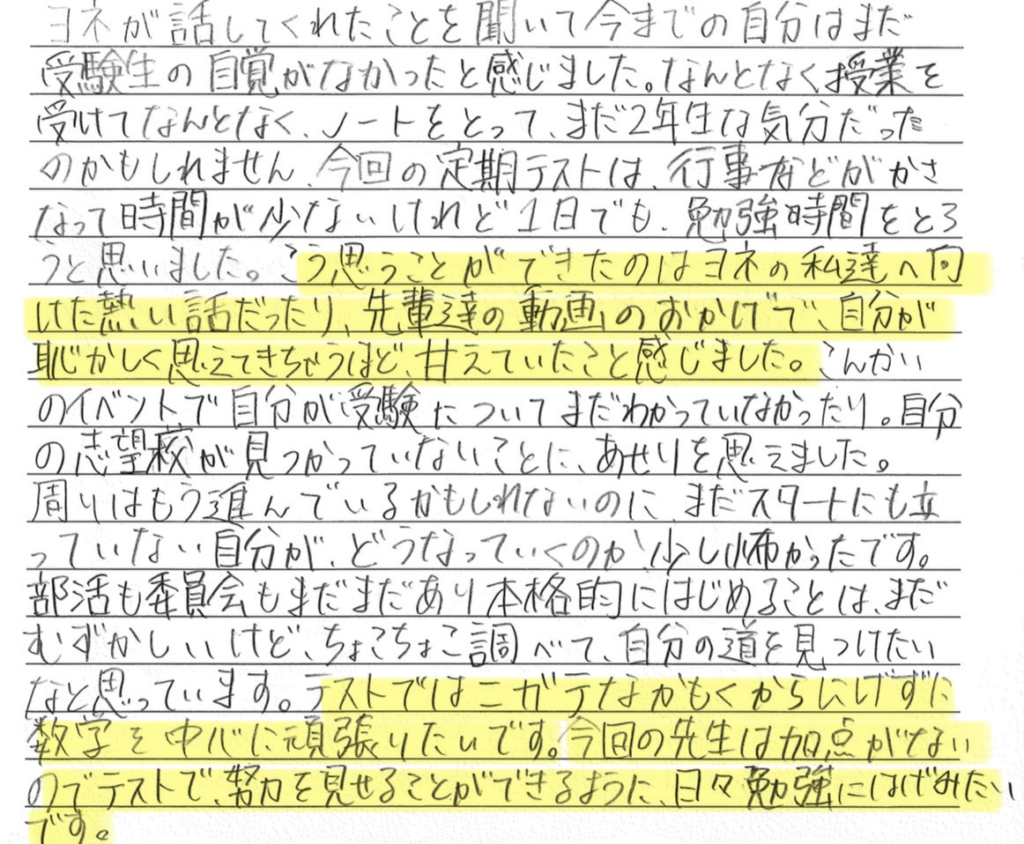 ヨネが話してくれたことを聞いて今までの自分はまだ
受験生の自覚がなかったと感じました。なんとなく授業を
受けてなんとなく、ノートをとって、まだ2年生な気分だった
のかもしれません、今回の定期テストは、行事などがかさ
なって時間が少ないけれど1日でも、勉強時間をとろ
うと思いました。こう思うことができたのはヨネの私達へ向
けた熱い話だったり、先輩達の動画のおかげで、自分が
恥かしく思えてきちゃうほど、甘えていたこと感じました。こんかい
のイベントで自分が受験についてまだわかっていなかったり。自分
の志望校が見つかっていないことに、あせりを思えました。
周りはもう進んでいるかもしれないのに、まだスタートにも立
っていない自分が、どうなっていくのか、少し怖かったです。
部活も委員会もまだまだあり本格的にはじめることは、まだ
むずかしいけど、ちょこちょこ調べて、自分の道を見つけたい
なと思っています。テストではニガテなかもくからにげずに
数学を中心に頑張りたいです。今回の先生は加点がない
のでテストで、努力を見せることができるように、日々勉強にはげみたい
です。